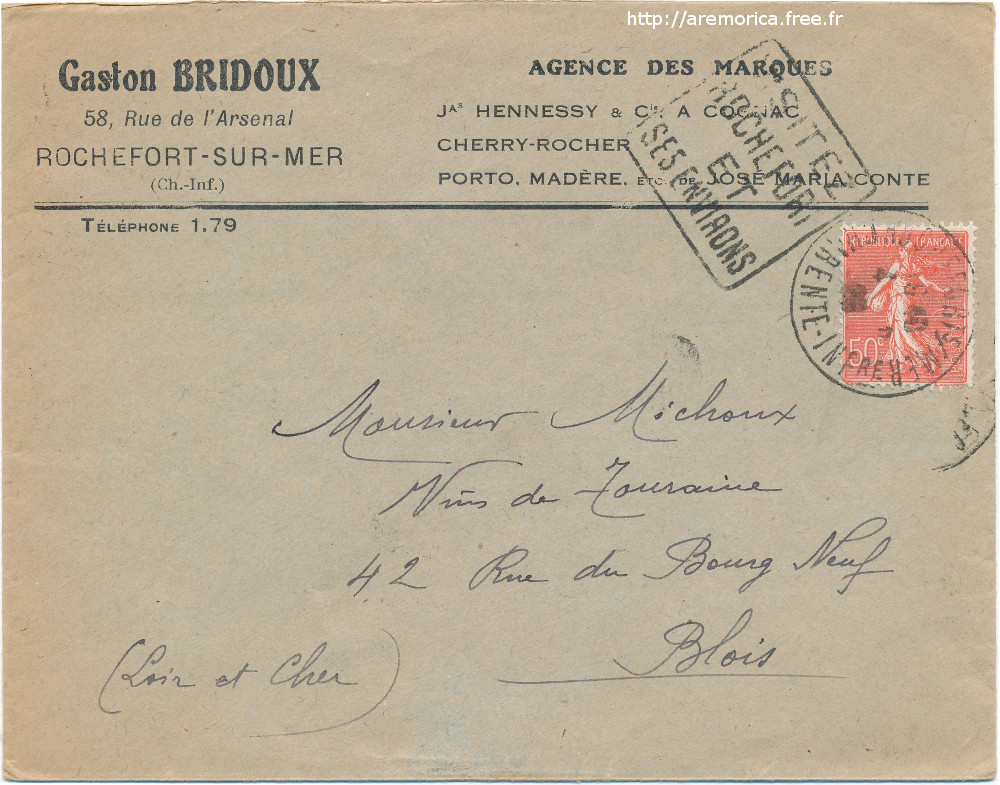 http://aremorica.free.fr
Gaston BRIDOUX
58, Rue de l'Arsenal
ROCHEFORT-SUR-MER
(Ch.-Inf.)
TÉLÉPHONE 1.79
AGENCE DES MARQUES
JAS HENNESSY & Cie A COGNAC
CHERRY-ROCHER
PORTO, MADÈRE, ETC. DE JOSÉ MARIA CONTE
VISITEZ
ROCHEFORT
ET
SES ENVIRONS
REPUBLIQUE FRANÇAISE
50c
CHARENTE-INFRE
Monsieur Michoux
Vins de Touraine
42 Rue du Bourg Neuf
Blois
(Loir et Cher)